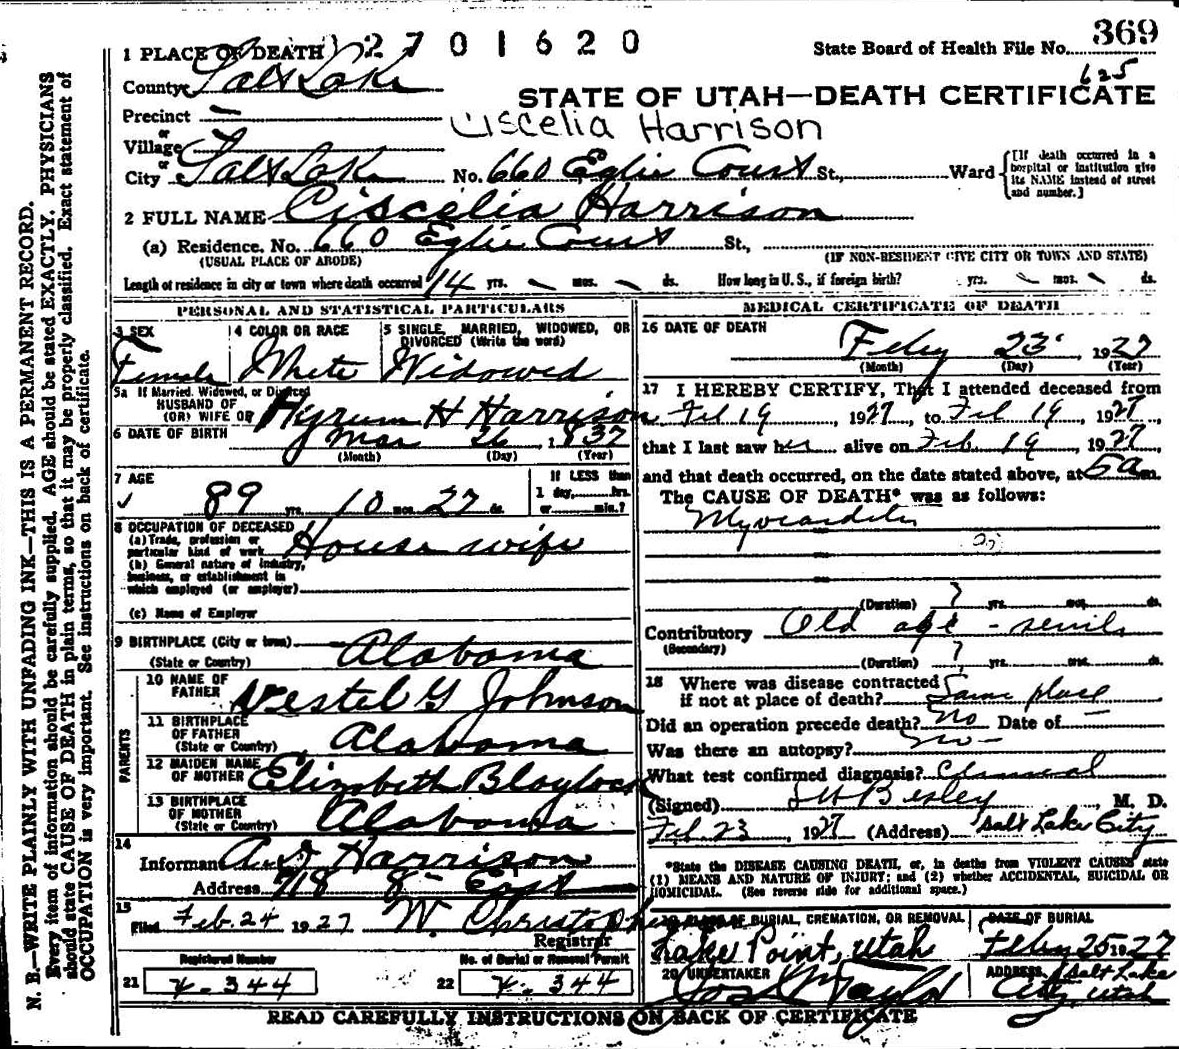 369
State Board of Health File No.
1 PLACE OF DEATH 2701620
625
County Salt Lake
STATE OF UTAH—DEATH CERTIFICATE
Precinct —
Ciscelia Harrison
or
Village
or
City Salt Lake No. 660 Eglie Court St., Ward
[If death occurred in a hospital or institution give its NAME instead of street and number.]
2 FULL NAME Ciscelia Harrison
(a) Residence. No. 660 Eglie Court St.,
(USUAL PLACE OF ABODE) (IF NON-RESIDENT GIVE CITY OR TOWN AND STATE)
Length of residence in city or town where death occurred 14 yrs. — mos. — ds. How long in U. S., if foreign birth? yrs. mos. ds.
PERSONAL AND STATISTICAL PARTICULARS
3 SEX
Female
4 COLOR OR RACE
White
5 SINGLE, MARRIED, WIDOWED, OR DIVORCED (Write the word)
Widowed
5a If Married, Widowed, or Divorced
HUSBAND OF
(OR) WIFE OF Hyrum H Harrison
6 DATE OF BIRTH Mar 26 1837
(Month) (Day) (Year)
7 AGE
89 yrs. 10 mos. 27 ds.
If LESS than
1 day, hrs.
or min.?
8 OCCUPATION OF DECEASED
(a) Trade, profession or
particular kind of work House wife
(b) General nature of industry,
business, or establishment in
which employed (or employer)
(c) Name of Employer
9 BIRTHPLACE (City or town)
(State or Country) Alabama
PARENTS
10 NAME OF
FATHER Vestel G Johnson
11 BIRTHPLACE
OF FATHER
(State or Country) Alabama
12 MAIDEN NAME
OF MOTHER Elizabeth Blaylock
13 BIRTHPLACE
OF MOTHER
(State or Country) Alabama
14
Informant Harrison
Address 718 8 East
15
Filed Feb. 24 1927 W. Christopherson
Registrar
Registered Number
21 344
No. of Burial or Removal Permit
22 344
MEDICAL CERTIFICATE OF DEATH
16 DATE OF DEATH
Feby 23 1927
(Month) (Day) (Year)
17 I HEREBY CERTIFY, That I attended deceased from
Feb 19 1927, to Feb 19, 1927,
that I last saw her alive on Feb 19 1927,
and that death occurred, on the date stated above, at 5 a m.
The CAUSE OF DEATH* was as follows:
Myocarditis
(Duration) ? yrs. mos. ds.
Contributory Old age - senile
(Secondary)
(Duration) ? yrs. mos. ds.
18 Where was disease contracted
if not at place of death? Same place
Did an operation precede death? no Date of —
Was there an autopsy? no —
What test confirmed diagnosis? Clinical
(Signed) Besley, M. D.
Feb. 23, 1927 (Address) Salt Lake City
*State the DISEASE CAUSING DEATH, or, in deaths from VIOLENT CAUSES state
(1) MEANS AND NATURE OF INJURY; and (2) whether ACCIDENTAL, SUICIDAL OR
HOMICIDAL. (See reverse side for additional space.)
19 PLACE OF BURIAL, CREMATION, OR REMOVAL
Lake Point, Utah
DATE OF BURIAL
Feby 25 1927
20 UNDERTAKER
Jos Taylor
ADDRESS
Salt Lake
City, Utah
READ CAREFULLY INSTRUCTIONS ON BACK OF CERTIFICATE
N. B.—WRITE PLAINLY WITH UNFADING INK—THIS IS A PERMANENT RECORD.
Every item of information should be carefully supplied. AGE should be stated EXACTLY. PHYSICIANS
should state CAUSE OF DEATH in plain terms, so that it may be properly classified. Exact statement of
OCCUPATION is very important. See instructions on back of certificate.